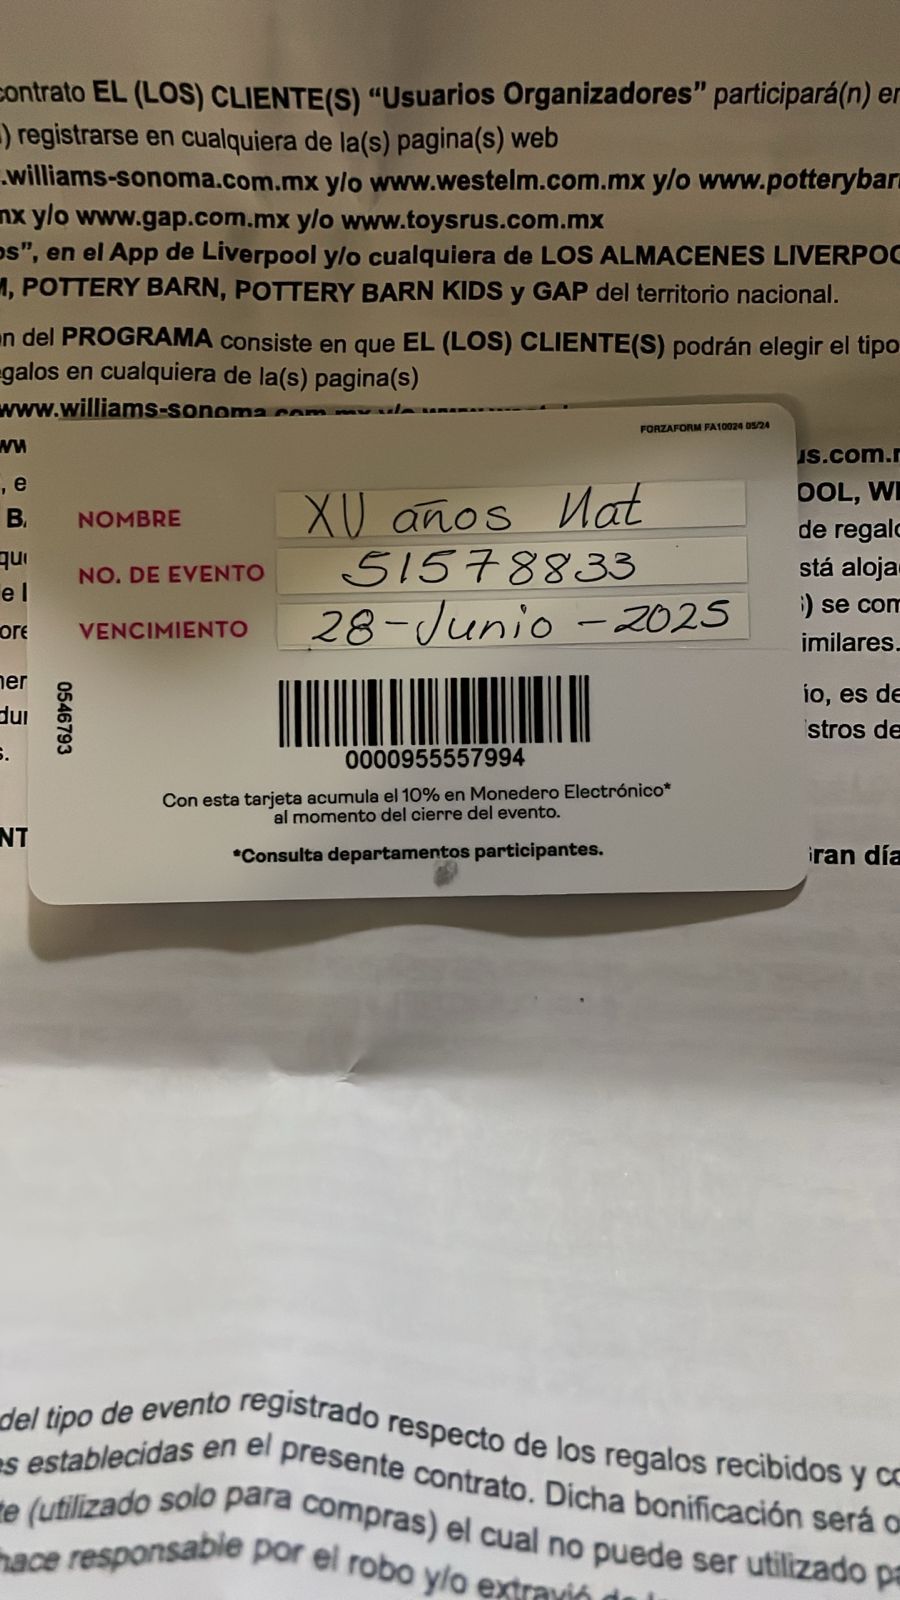 contrato EL (LOS) CLIENTE(S) “Usuarios Organizadores” participará(n) en
) registrarse en cualquiera de la(s) pagina(s) web
.williams-sonoma.com.mx y/o www.westelm.com.mx y/o www.potterybar
mx y/o www.gap.com.mx y/o www.toysrus.com.mx
os”, en el App de Liverpool y/o cualquiera de LOS ALMACENES LIVERPOO
M, POTTERY BARN, POTTERY BARN KIDS y GAP del territorio nacional.
n del PROGRAMA consiste en que EL (LOS) CLIENTE(S) podrán elegir el tipo
egalos en cualquiera de la(s) pagina(s)
www.williams-sonoma.com.mx y/o
FORZAFORM FA10024 05/24
us.com.m
, e
OOL, WI
NOMBRE XV años Nat
de regalo
NO. DE EVENTO 51578833
stá aloja
VENCIMIENTO 28-Junio-2025
) se com
imilares.
io, es de
stros de
0546793
0000955557994
Con esta tarjeta acumula el 10% en Monedero Electrónico*
al momento del cierre del evento.
*Consulta departamentos participantes.
NT
ran día
del tipo de evento registrado respecto de los regalos recibidos y co
es establecidas en el presente contrato. Dicha bonificación será o
te (utilizado solo para compras) el cual no puede ser utilizado pa
hace responsable por el robo y/o extravió de